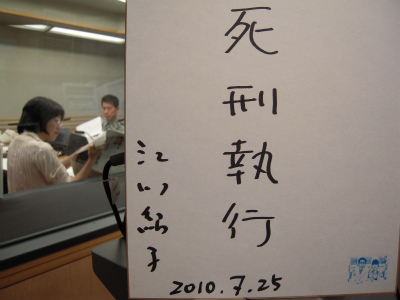 死刑執行
江川紹子
2010.7.25